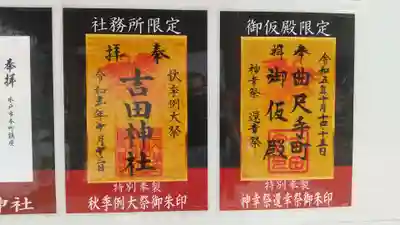 奉拝
水戸市本町鎮座
神社
社務所限定
奉拝
秋季例大祭
吉田神社
特別奉製
秋季例大祭御朱印
御仮殿限定
奉拝
令和五年十月十四十五日
曲尺手町
御仮殿
神幸祭 還幸祭
特別奉製
神幸祭還幸祭御朱印